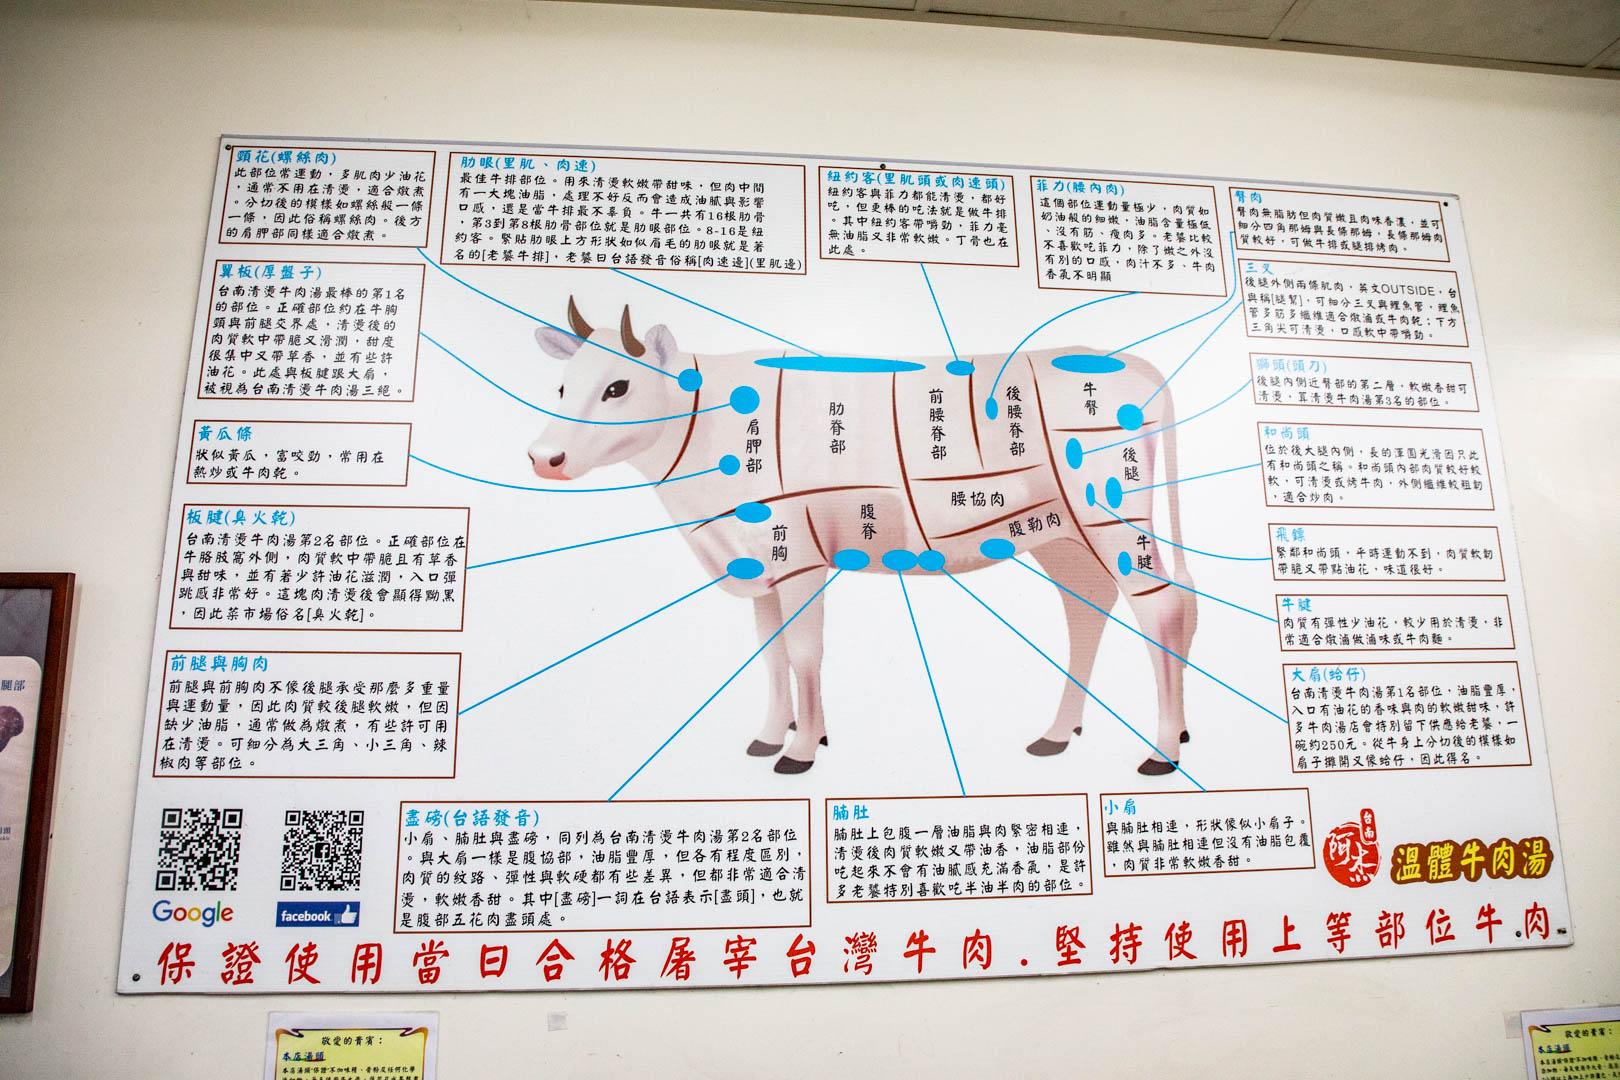 頸花(螺絲肉)
此部位常運動，多肌肉少油花
，通常不用在清燙，適合燉煮
。分切後的模樣如螺絲般一條
一條，因此俗稱螺絲肉。後方
的肩胛部同樣適合燉煮。
肋眼(里肌、肉速)
最佳牛排部位。用來清燙軟嫩帶甜味，但肉中間
有一大塊油脂，處理不好反而會造成油膩與影響
口感，還是當牛排最不辜負。牛一共有16根肋骨
，第3到第8根肋骨部位就是肋眼部位。8-16是紐
約客。緊貼肋眼上方形狀如似眉毛的肋眼就是著
名的[老饕牛排]，老饕曰台語發音俗稱[肉速邊](里肌邊)
紐約客(里肌頭或肉速頭)
紐約客與菲力都能清燙，都好
吃，但更棒的吃法就是做牛排
。其中紐約客帶嚼勁，菲力毫
無油脂又非常軟嫩。丁骨也在
此處。
菲力(腰內肉)
這個部位運動量極少，肉質如
奶油般的細嫩，油脂含量極低
、沒有筋、瘦肉多。老饕比較
不喜歡吃菲力，除了嫩之外沒
有別的口感，肉汁不多、牛肉
香氣不明顯
臀肉
臀肉無脂肪但肉質嫩且肉味香濃，並可
細分四角那姆與長條那姆，長條那姆肉
質較好，可做牛排或腿排烤肉。
三叉
後腿外側兩條肌肉，英文OUTSIDE，台
與稱[腿幫]，可細分三叉與鯉魚管，鯉魚
管多筋多纖維適合燉滷或牛肉乾；下方
三角尖可清燙，口感軟中帶嚼勁。
獅頭(頭刀)
後腿內側近臀部的第二層，軟嫩香甜可
清燙，算清燙牛肉湯第3名的部位。
和尚頭
位於後大腿內側，長的渾圓光滑因只此
有和尚頭之稱。和尚頭內部肉質較好較
軟，可清燙或烤牛肉，外側纖維較粗韌
，適合炒肉。
飛鏢
緊鄰和尚頭，平時運動不到，肉質軟韌
帶脆又帶點油花，味道很好。
牛腱
肉質有彈性少油花，較少用於清燙，非
常適合燉滷做滷味或牛肉麵。
大扇(蛤仔)
台南清燙牛肉湯第1名部位，油脂豐厚，
入口有油花的香味與肉的軟嫩甜味，許
多牛肉湯店會特別留下供應給老饕，一
碗約250元。從牛身上分切後的模樣如
扇子攤開又像蛤仔，因此得名。
翼板(厚盤子)
台南清燙牛肉湯最棒的第1名
的部位。正確部位約在牛胸
頸與前腿交界處，清燙後的
肉質軟中帶脆又滑潤，甜度
很集中又帶草香，並有些許
油花。此處與板腱跟大扇，
被視為台南清燙牛肉湯三絕。
黃瓜條
狀似黃瓜，富咬勁，常用在
熱炒或牛肉乾。
板腱(臭火乾)
台南清燙牛肉湯第2名部位。正確部位在
牛胳肢窩外側，肉質軟中帶脆且有草香
與甜味，並有著少許油花滋潤，入口彈
跳感非常好。這塊肉清燙後會顯得黝黑
，因此菜市場俗名[臭火乾]。
前腿與胸肉
前腿與前胸肉不像後腿承受那麼多重量
與運動量，因此肉質較後腿軟嫩，但因
缺少油脂，通常做為燉煮，有些許可用
在清燙。可細分為大三角、小三角、辣
椒肉等部位。
肩胛部
肋脊部
前腰脊部
後腰脊部
牛臀
後腿
腰協肉
腹勒肉
腹脊
前胸
牛腱
盡磅(台語發音)
小扇、腩肚與盡磅，同列為台南清燙牛肉湯第2名部位
。與大扇一樣是腹協部，油脂豐厚，但各有程度區別，
肉質的紋路、彈性與軟硬都有些差異，但都非常適合清
燙，軟嫩香甜。其中[盡磅]一詞在台語表示[盡頭]，也就
是腹部五花肉盡頭處。
腩肚
腩肚上包腹一層油脂與肉緊密相連，
清燙後肉質軟嫩又帶油香，油脂部份
吃起來不會有油膩感充滿香氣，是許
多老饕特別喜歡吃半油半肉的部位。
小扇
與腩肚相連，形狀像似小扇子。
雖然與腩肚相連但沒有油脂包覆
，肉質非常軟嫩香甜。
Google
facebook
台南
阿杰
溫體牛肉湯
保證使用當日合格屠宰台灣牛肉.堅持使用上等部位牛肉
腿部
敬愛的貴賓：
本店湯頭
敬愛的貴賓：
本店湯頭